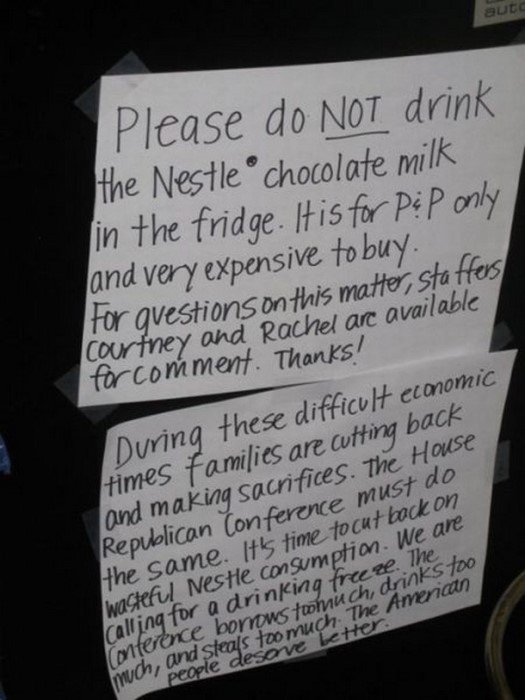 auto
Please do NOT drink
the Nestle® chocolate milk
in the fridge. It is for P&P only
and very expensive to buy.
For questions on this matter, staffers
Courtney and Rachel are available
for comment. Thanks!
During these difficult economic
times families are cutting back
and making sacrifices. The House
Republican Conference must do
the same. It's time to cut back on
wasteful Nestle consumption. We are
calling for a drinking freeze. The
Conference borrows too much, drinks too
much, and steals too much. The American
people deserve better.